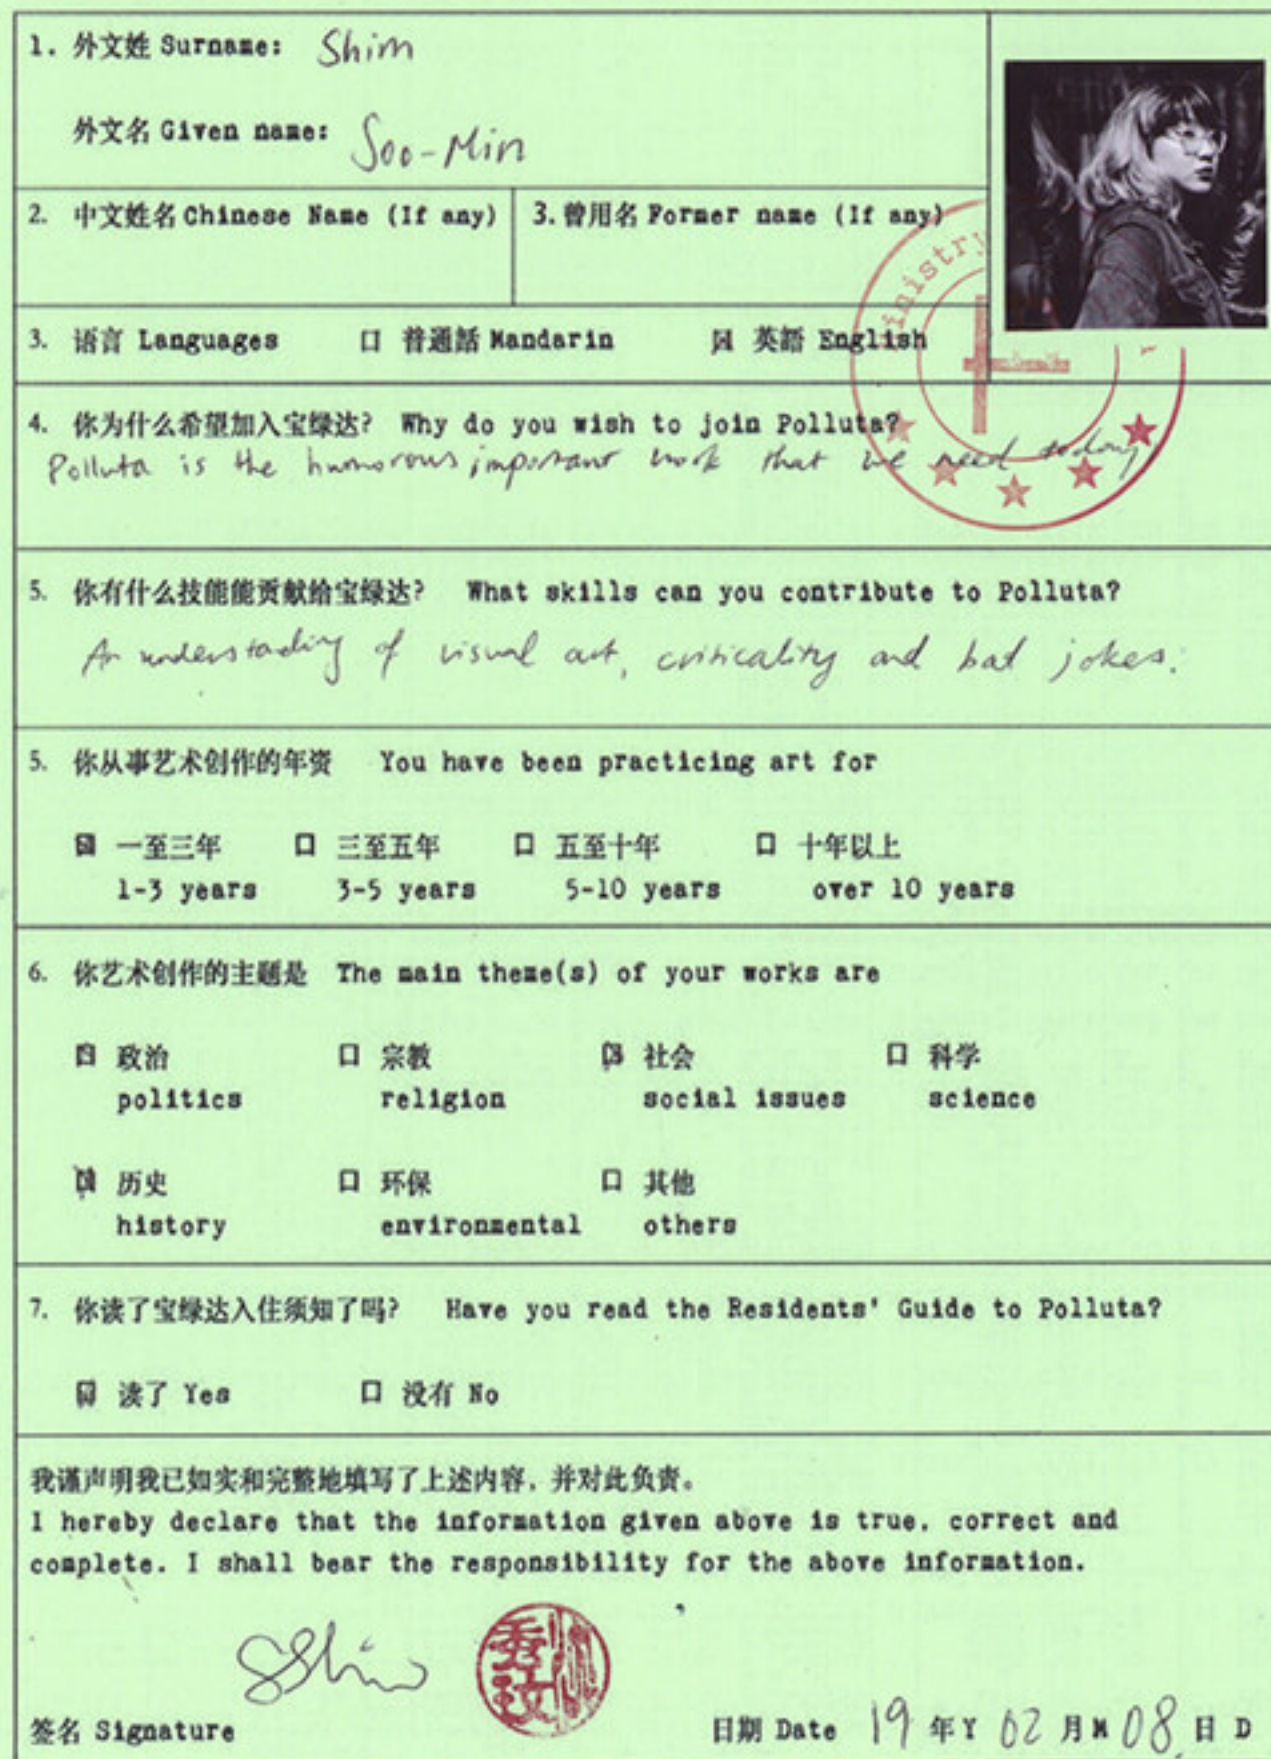 1. 外文姓 Surname: Shim
外文名 Given name: Soo-Min
2. 中文姓名 Chinese Name (If any)
3. 曾用名 Former name (If any)
3. 语言 Languages 口 普通話 Mandarin 口 英語 English
4. 你为什么希望加入宝绿达? Why do you wish to join Polluta?
Polluta is the humorous important work that we need today
5. 你有什么技能能贡献给宝绿达? What skills can you contribute to Polluta?
An understanding of visual art, criticality and bad jokes.
5. 你从事艺术创作的年资 You have been practicing art for
口 一至三年 口 三至五年 口 五至十年 口 十年以上
1-3 years 3-5 years 5-10 years over 10 years
6. 你艺术创作的主题是 The main theme(s) of your works are
口 政治 口 宗教 口 社会 口 科学
politics religion social issues science
口 历史 口 环保 口 其他
history environmental others
7. 你读了宝绿达入住须知了吗? Have you read the Residents' Guide to Polluta?
口 读了 Yes 口 没有 No
我谨声明我已如实和完整地填写了上述内容，并对此负责。
I hereby declare that the information given above is true, correct and
complete. I shall bear the responsibility for the above information.
SShim
签名 Signature 日期 Date 19 年 Y 02 月 M 08 日 D
Ministry